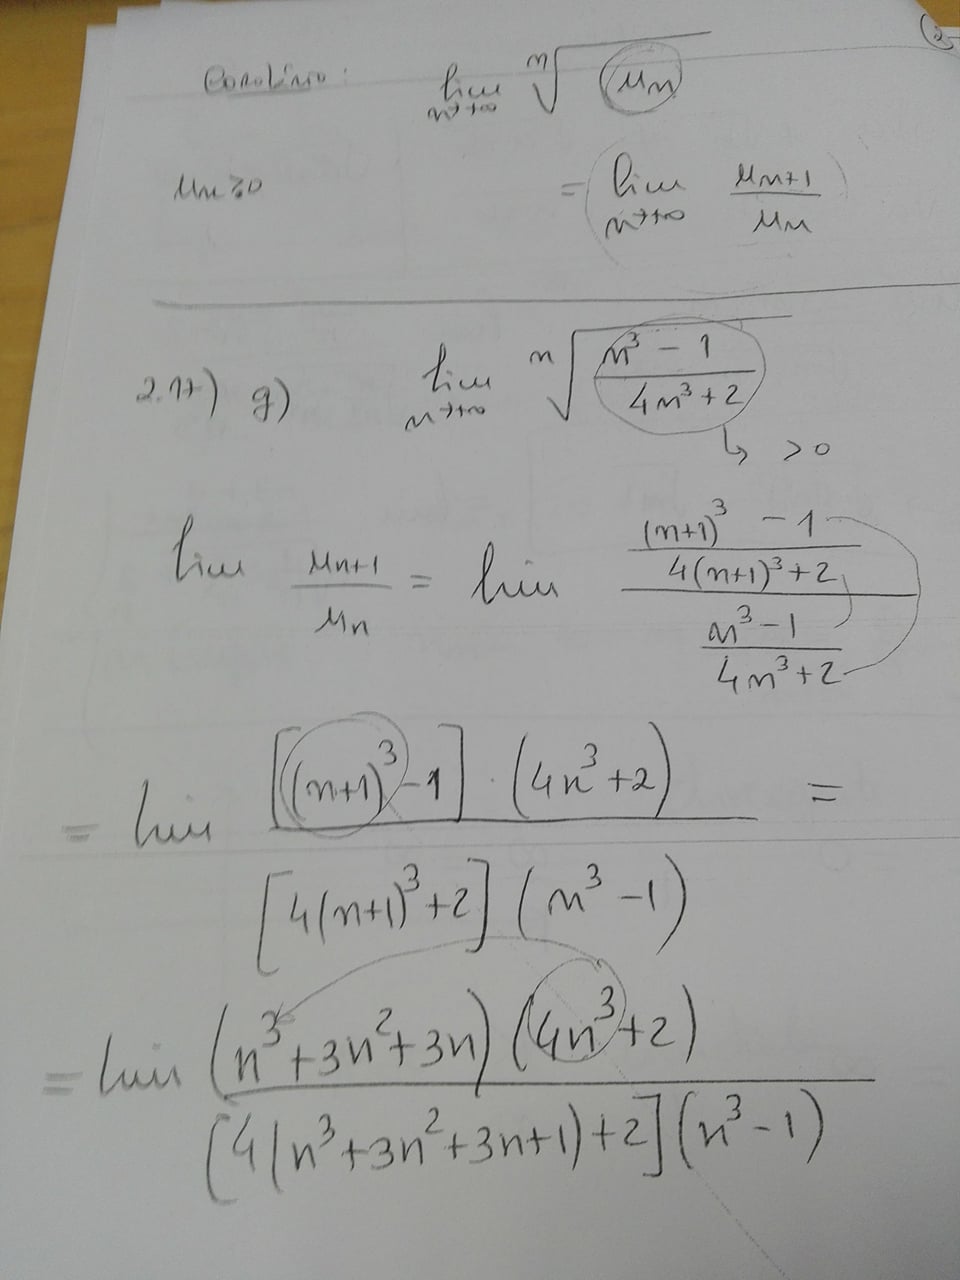 2
Corolário: lim n→+∞ ⁿ√(un)
un ≥ 0 = lim n→+∞ un+1 / un
2.17) g) lim n→+∞ ⁿ√((n³ - 1) / (4n³ + 2))
↳ > 0
lim un+1 / un = lim (((n+1)³ - 1) / (4(n+1)³ + 2)) / ((n³ - 1) / (4n³ + 2))
= lim ([(n+1)³ - 1] · (4n³ + 2)) / ([4(n+1)³ + 2] (n³ - 1)) =
= lim ((n³ + 3n² + 3n) (4n³ + 2)) / ([4(n³ + 3n² + 3n + 1) + 2] (n³ - 1))